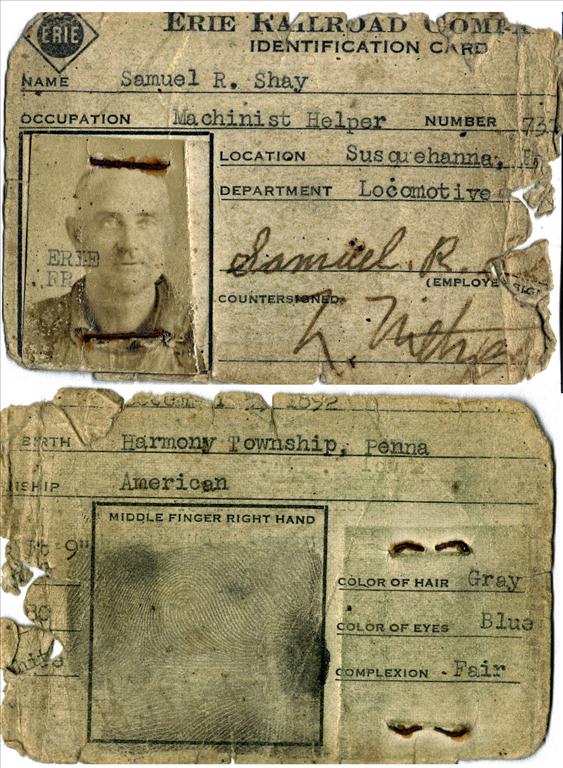 ERIE
ERIE RAILROAD
IDENTIFICATION CARD
NAME Samuel R. Shay
OCCUPATION Machinist Helper NUMBER 737
LOCATION Susquehanna,
DEPARTMENT Locomotive
ERIE
Samuel R.
(EMPLOYE
COUNTERSIGNED
1892
BIRTH Harmony Township, Penna
SHIP American
MIDDLE FINGER RIGHT HAND
9"
COLOR OF HAIR Gray
COLOR OF EYES Blue
COMPLEXION Fair